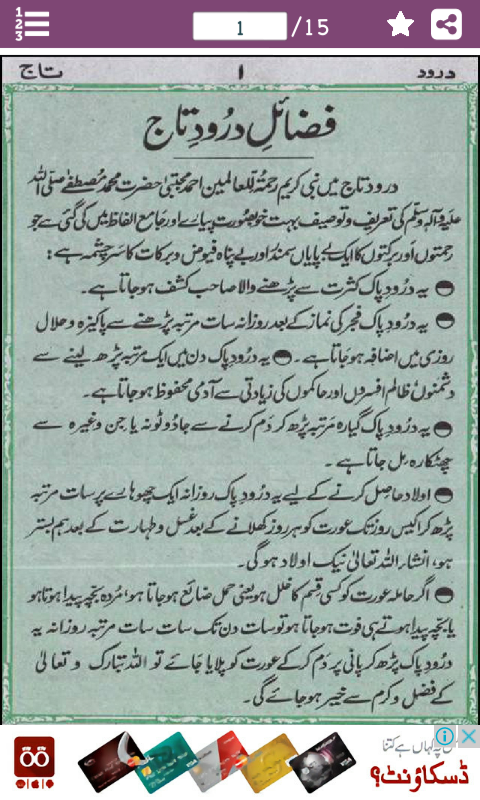 1
2
3
1 /15
تاج ۱ درود
فضائلِ درُودِ تاج
درود تاج میں نبی کریم رحمۃٌ للعالمین احمد مجتبیٰ حضرت محمد مُصطفےٰ صلی اللہ
علیہ وآلہ وسلّم کی تعریف و توصیف بہت خوبصورت پیارے اور جامع الفاظ میں کی گئی ہے جو
رحمتوں اور برکتوں کا ایک بے پایاں سمندر اور بے پناہ فیوض و برکات کا سَرچشمہ ہے :
یہ درُودِ پاک کثرت سے پڑھنے والا صاحب کشف ہو جاتا ہے۔
یہ درُودِ پاک فجر کی نماز کے بعد روزانہ سات مرتبہ پڑھنے سے پاکیزہ و حلال
روزی میں اضافہ ہو جاتا ہے۔ یہ درُودِ پاک دن میں ایک مرتبہ پڑھ لینے سے
دشمنوں ظالم افسروں اور حاکموں کی زیادتی سے آدمی محفوظ ہو جاتا ہے۔
یہ درُودِ پاک گیارہ مَرتبہ پڑھ کر دَم کرنے سے جادُو ٹونہ یا جن وغیرہ سے
چھٹکارہ مل جاتا ہے۔
اولاد حاصل کرنے کے لیے یہ درُودِ پاک روزانہ ایک چھوہارے پر سات مرتبہ
پڑھ کر اکیس روز تک عورت کو ہر روز کھلانے کے بعد غسل و طہارت کے بعد ہم بستر
ہو، انشاء اللہ تعالیٰ نیک اولاد ہو گی۔
اگر حاملہ عورت کو کسی قِسم کا خلل ہو یعنی حمل ضائع ہو جاتا ہو، مُردہ بچّہ پیدا ہوتا ہو
یا بچّہ پیدا ہوتے ہی فوت ہو جاتا ہو تو سات دن تک سات سات مرتبہ روزانہ یہ
درُودِ پاک پڑھ کر پانی پر دَم کر کے عورت کو پلایا جائے تو اللہ تبارک و تعالیٰ
کے فضل و کرم سے خیر ہو جائے گی۔
کہاں ہے کتنا
ڈسکاؤنٹ؟
VISA